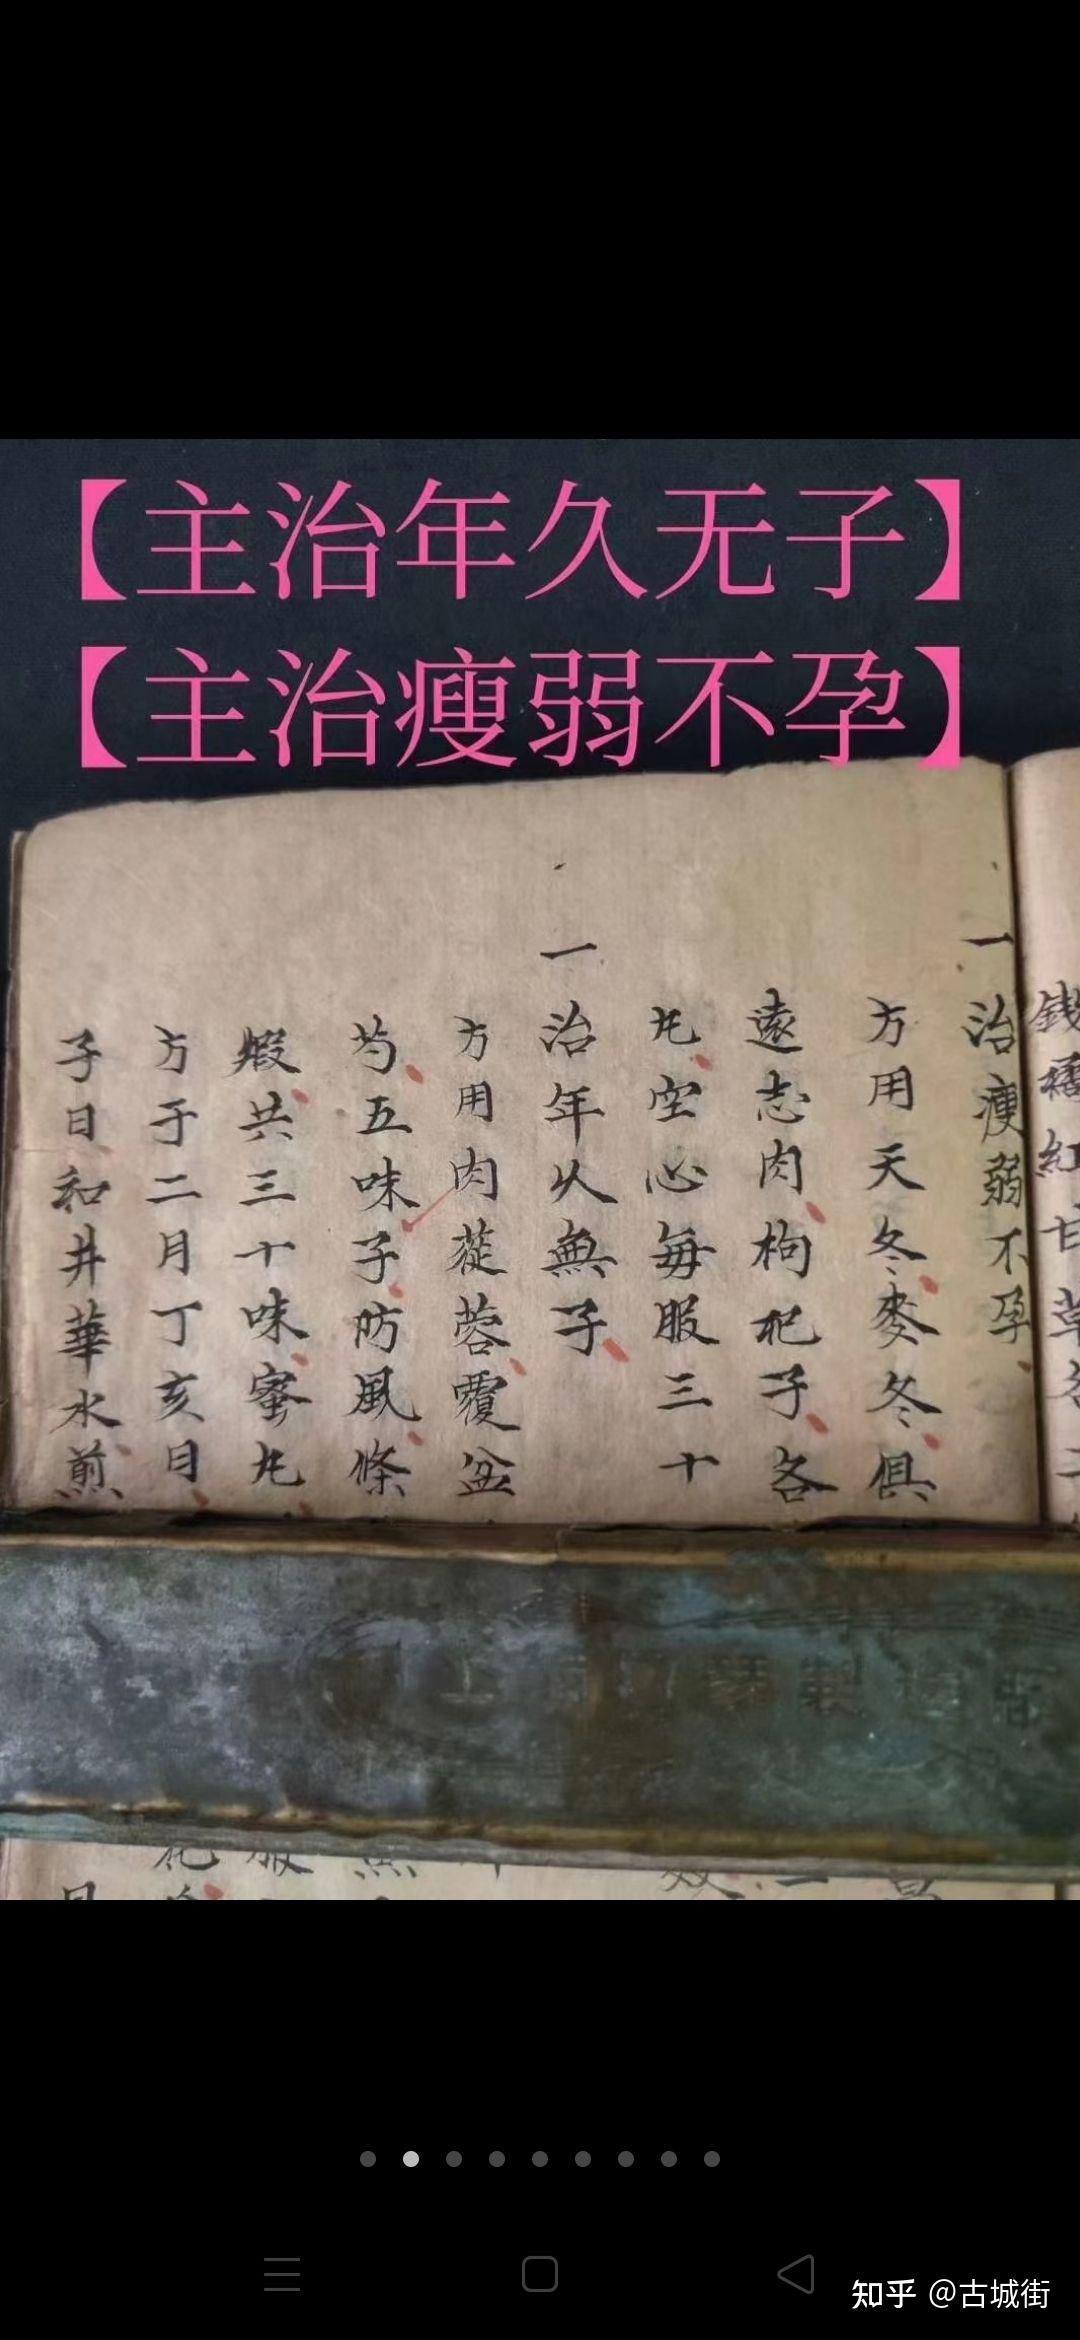 【主治年久无子】
【主治瘦弱不孕】
錢橘紅甘草各
一治瘦弱不孕
方用天冬麥冬俱
遠志肉枸杞子各
丸空心每服三十
一治年久無子
方用肉蓯蓉覆盆
芍五味子防風條
蝦共三十味蜜丸
方于二月丁亥日
子日和井華水煎
知乎 @古城街